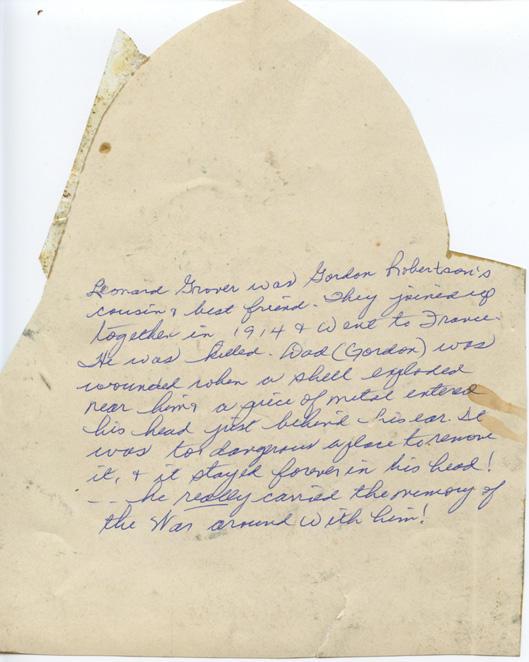 Leonard Grover was Gordon Robertson's
cousin & best friend. They joined up
together in 1914 & went to France.
He was killed. Dad (Gordon) was
wounded when a shell exploded
near him & a piece of metal entered
his head just behind his ear. It
was too dangerous a place to remove
it, & it stayed forever in his head!
--- he really carried the memory of
the War around with him!